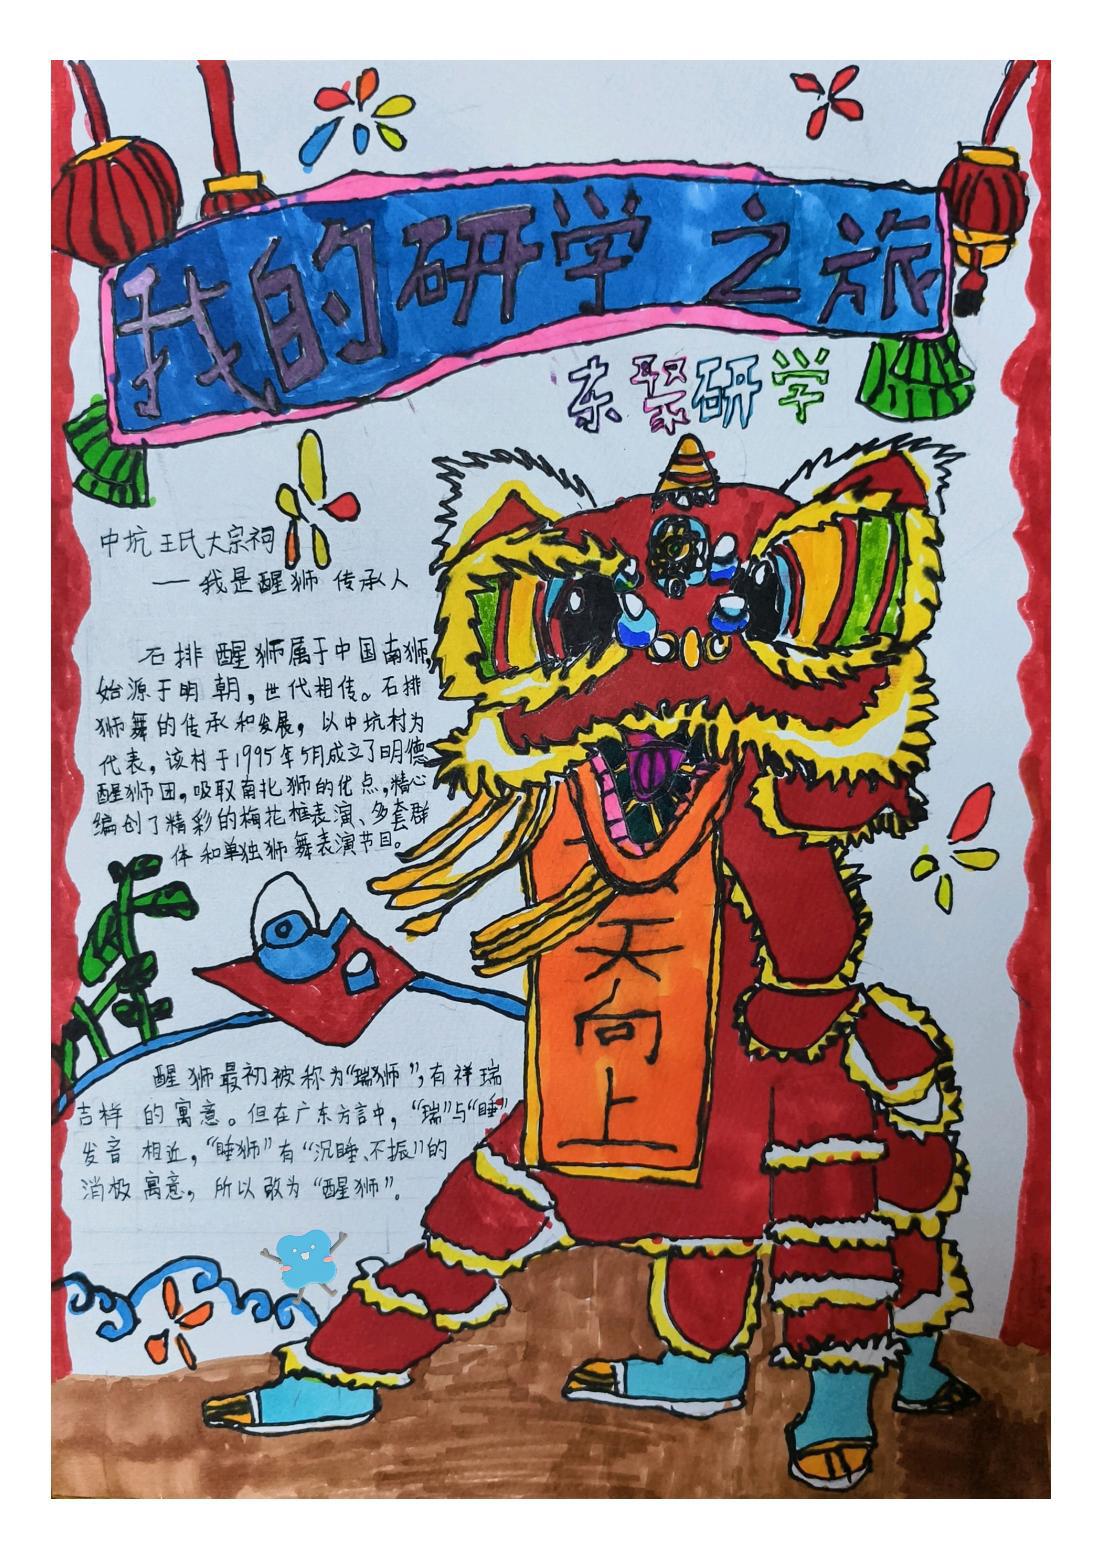 我的研学之旅
东琴研学
中坑王氏大宗祠
——我是醒狮传承人
石排醒狮属于中国南狮,
始源于明朝，世代相传。石排
狮舞的传承和发展，以中坑村为
代表，该村于1995年5月成立了明德
醒狮团，吸取南北狮的优点，精心
编创了精彩的梅花桩表演、多套群
体和单独狮舞表演节目。
天向上
醒狮最初被称为“瑞狮”，有祥瑞
吉祥的寓意。但在广东方言中，“瑞”与“睡”
发音相近，“睡狮”有“沉睡、不振”的
消极寓意，所以改为“醒狮”。